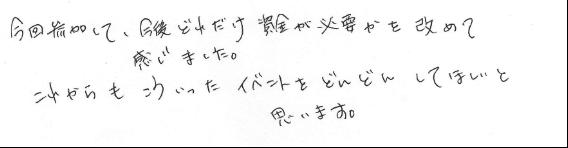 今回参加して、今後どれだけ資金が必要かを改めて
感じました。
これからもこういったイベントをどんどんしてほしいと
思います。